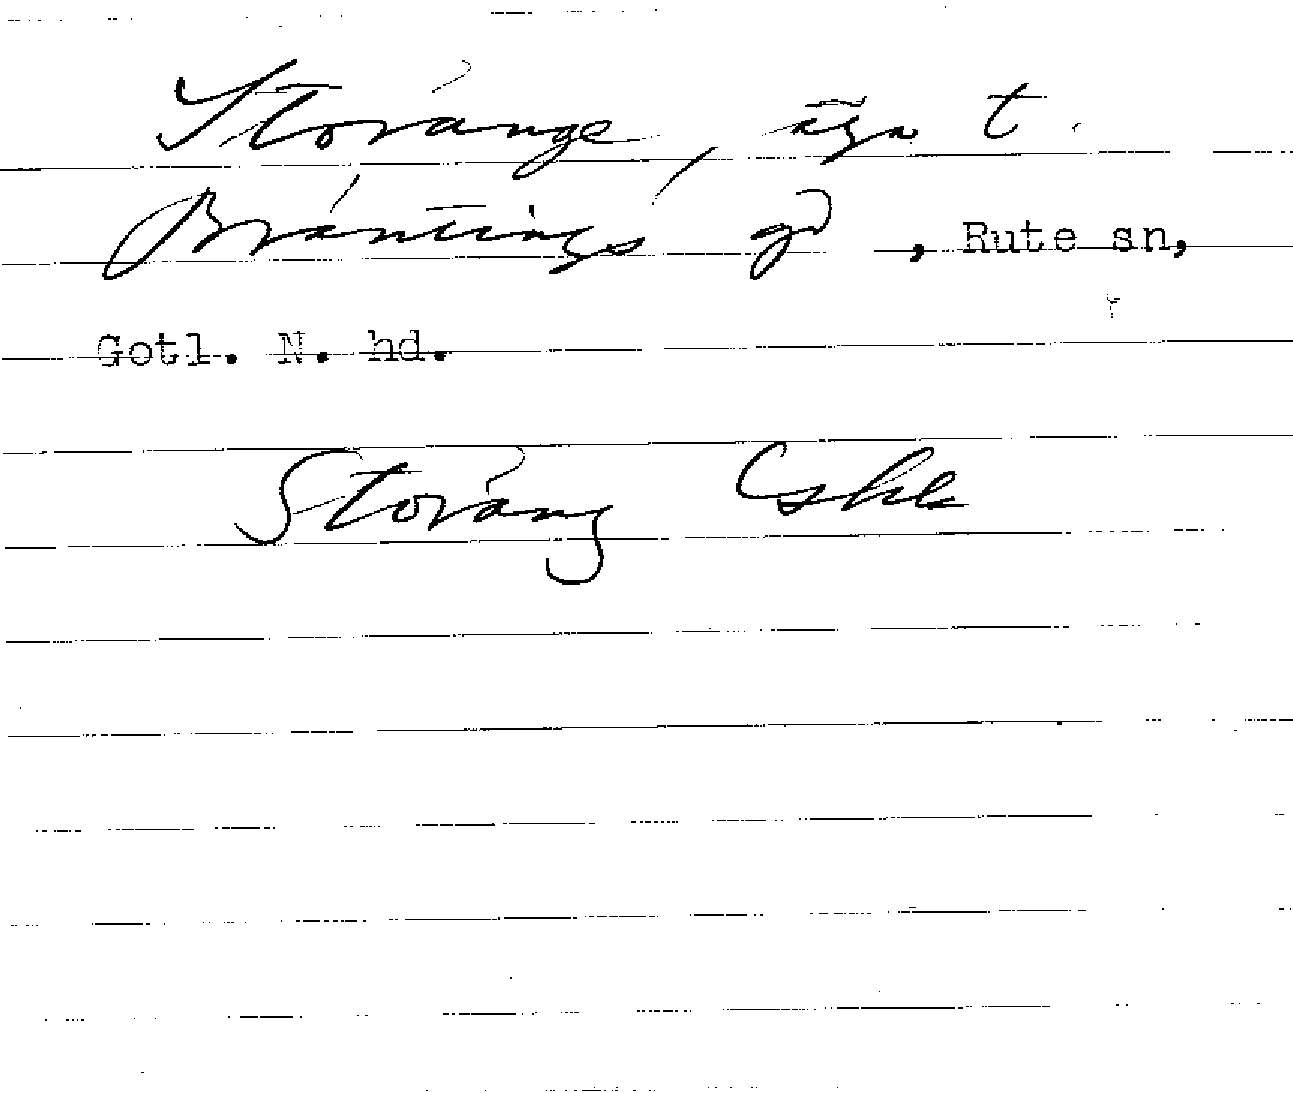 Storänge, äga t.
Bräntings gd, Rute sn,
Gotl. N. hd.
Storäng Eshk